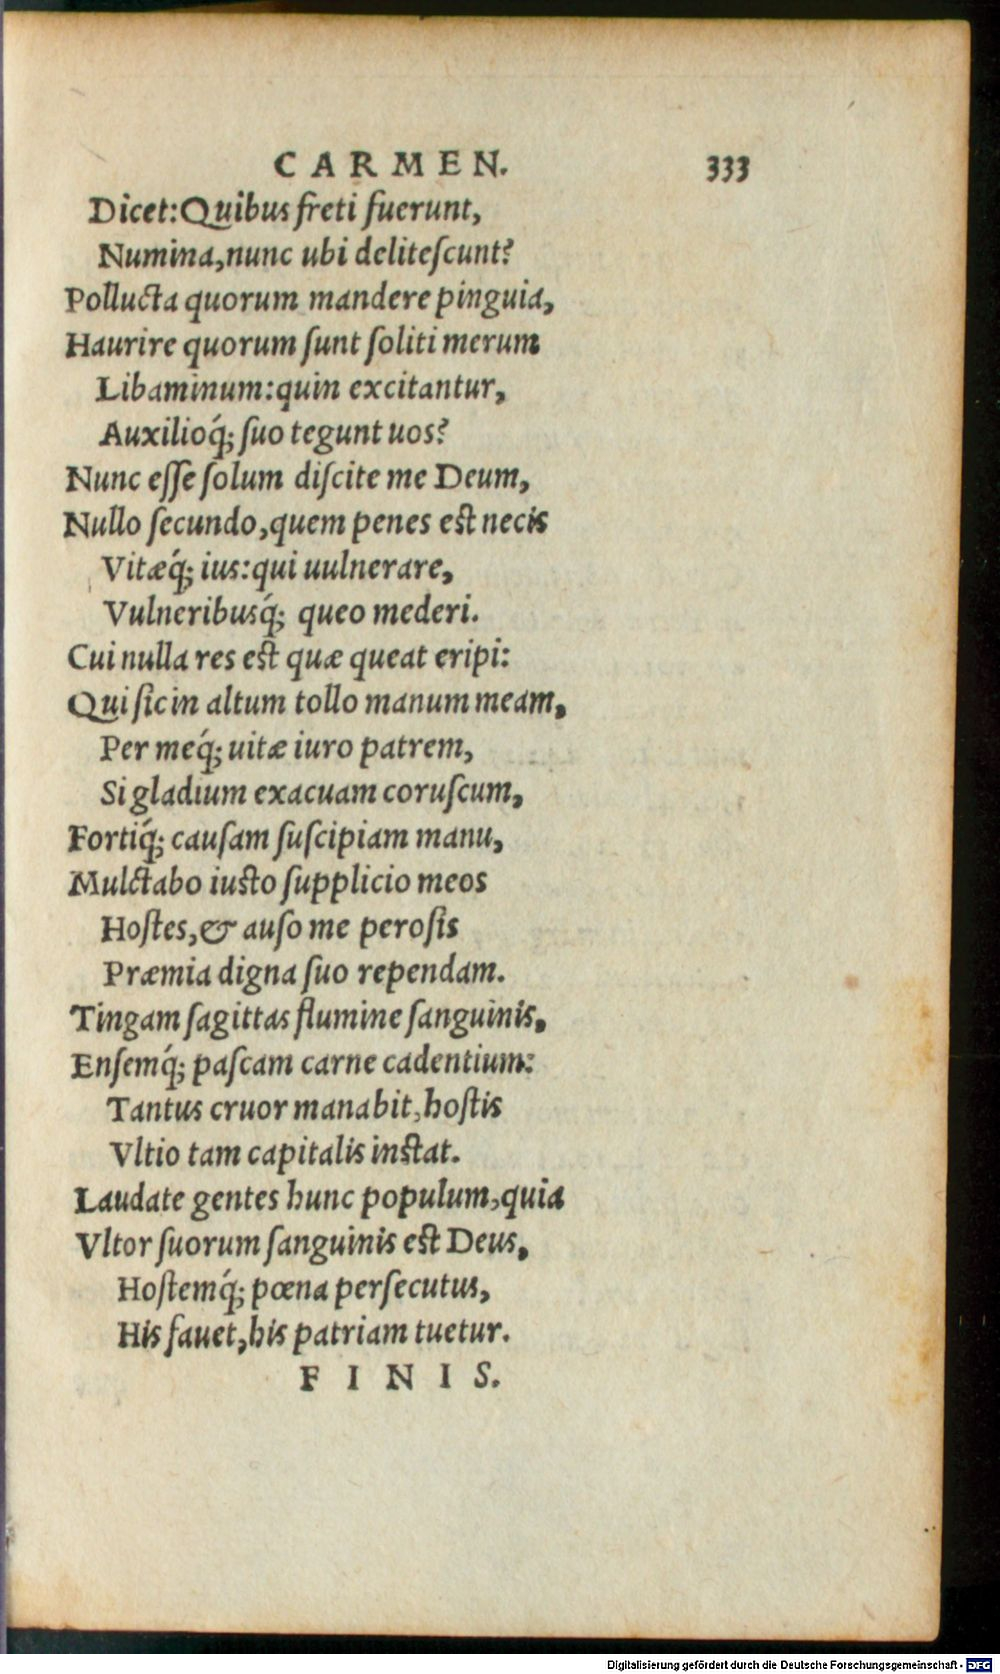 CARMEN. 333
Dicet:Quibus freti fuerunt,
Numina,nunc ubi deliteſcunt?
Pollucta quorum mandere pinguia,
Haurire quorum ſunt ſoliti merum
Libaminum:quin excitantur,
Auxilioq́; ſuo tegunt uos?
Nunc eſſe ſolum diſcite me Deum,
Nullo ſecundo,quem penes eſt necis
Vitæq́; ius:qui uulnerare,
Vulneribusq́; queo mederi.
Cui nulla res eſt quæ queat eripi:
Qui ſic in altum tollo manum meam,
Per meq́; uitæ iuro patrem,
Si gladium exacuam coruſcum,
Fortiq́; cauſam ſuſcipiam manu,
Mulctabo iuſto ſupplicio meos
Hoſtes,& auſo me peroſis
Præmia digna ſuo rependam.
Tingam ſagittas flumine ſanguinis,
Enſemq́; paſcam carne cadentium:
Tantus cruor manabit,hoſtis
Vltio tam capitalis inſtat.
Laudate gentes hunc populum,quia
Vltor ſuorum ſanguinis eſt Deus,
Hoſtemq́; pœna perſecutus,
His fauet,his patriam tuetur.
FINIS.
Digitalisierung gefördert durch die Deutsche Forschungsgemeinschaft - DFG